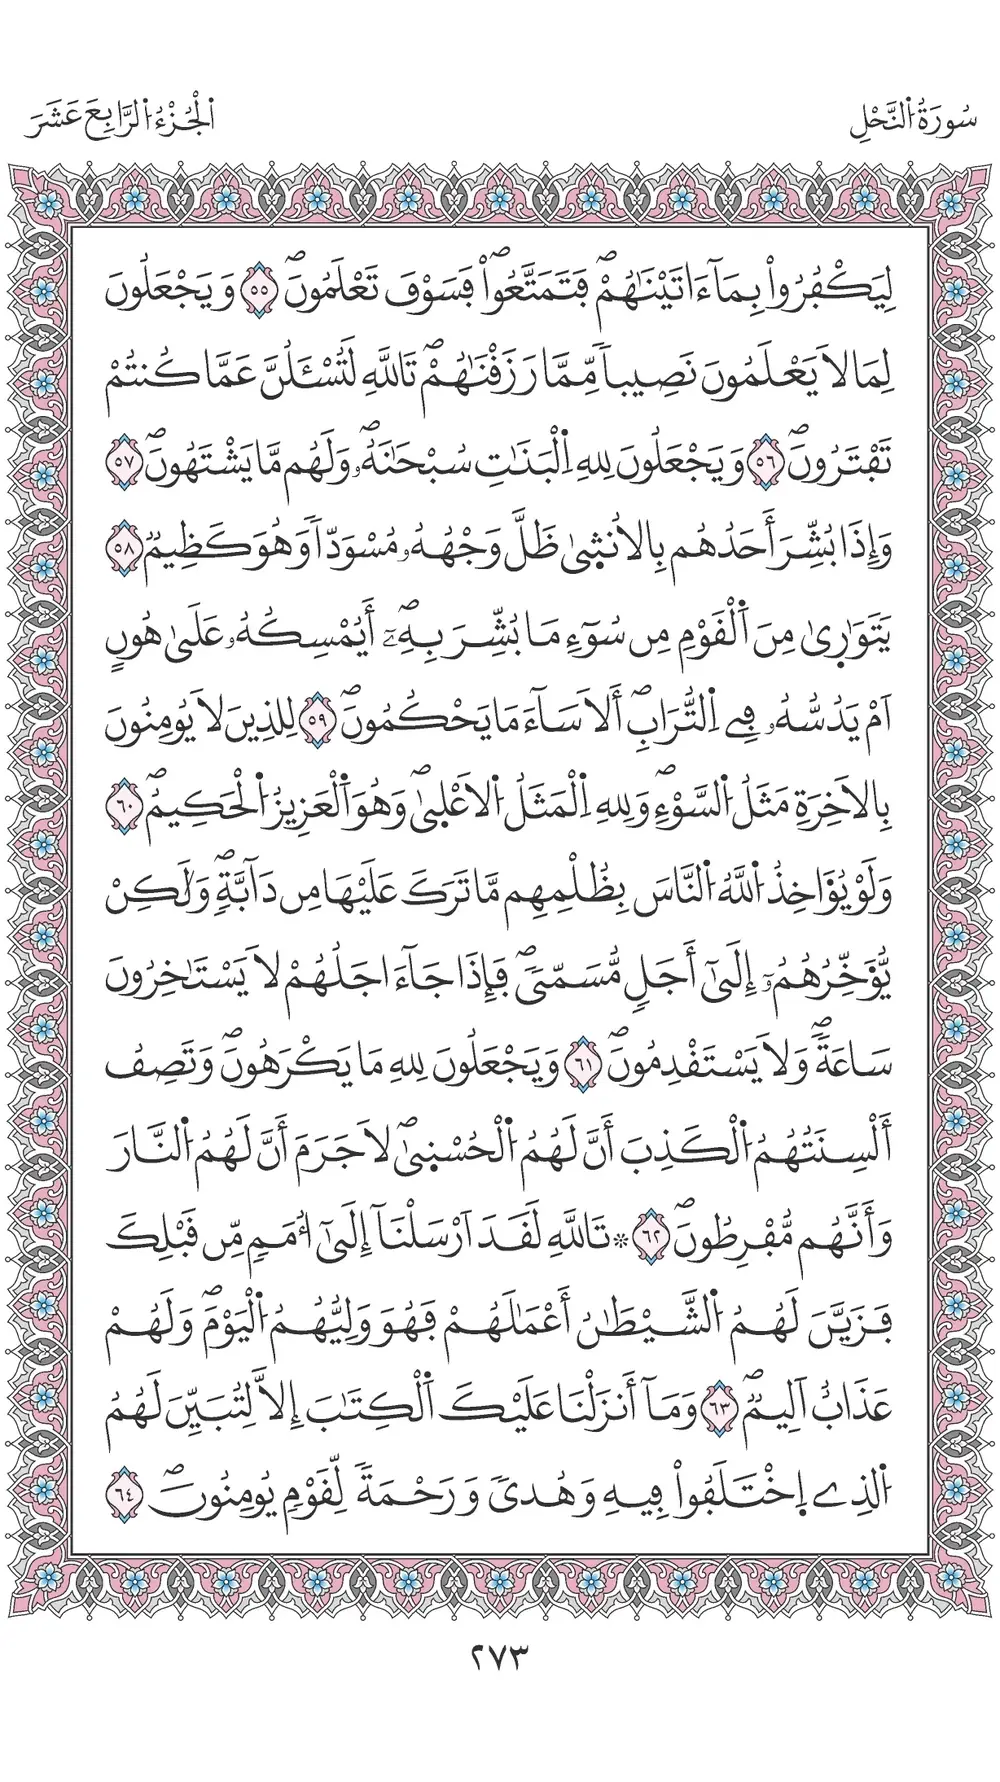 سُورَةُ النَّحْلِ
الْجُزْءُ الرَّابِعَ عَشَرَ
لِيَكْفُرُواْ بِمَآ ءَاتَيْنَٰهُمْۖ فَتَمَتَّعُواْۖ فَسَوْفَ تَعْلَمُونَۖ ٥٥ وَيَجْعَلُونَ
لِمَا لَا يَعْلَمُونَ نَصِيباٗ مِّمَّا رَزَقْنَٰهُمْۖ تَاللَّهِ لَتُسْـَٔلُنَّ عَمَّا كُنتُمْ
تَفْتَرُونَۖ ٥٦ وَيَجْعَلُونَ لِلهِ اِلْبَنَٰتِ سُبْحَٰنَهُۥۖ وَلَهُم مَّا يَشْتَهُونَۖ ٥٧
وَإِذَا بُشِّرَ أَحَدُهُم بِالُانث۪يٰ ظَلَّ وَجْهُهُۥ مُسْوَدّاٗ وَهُوَ كَظِيمٞ ٥٨
يَتَوَٰر۪يٰ مِنَ اَلْقَوْمِ مِن سُوٓءِ مَا بُشِّرَ بِهِۦٓۖ أَيُمْسِكُهُۥ عَلَىٰ هُونٍ
اَمْ يَدُسُّهُۥ فِے اِلتُّرَابِۖ أَلَا سَآءَ مَا يَحْكُمُونَۖ ٥٩ لِلذِينَ لَا يُومِنُونَ
بِالَاخِرَةِ مَثَلُ اُلسَّوْءِۖ وَلِلهِ اِلْمَثَلُ اُلَاعْل۪يٰۖ وَهُوَ اَلْعَزِيزُ اُلْحَكِيمُۖ ٦٠
وَلَوْ يُؤَاخِذُ اُللَّهُ اُلنَّاسَ بِظُلْمِهِم مَّا تَرَكَ عَلَيْهَا مِن دَآبَّةٖۖ وَلَٰكِنْ
يُّؤَخِّرُهُمُۥٓ إِلَىٰٓ أَجَلٖ مُّسَمّىٗۖ فَإِذَا جَآءَ اجَلُهُمْ لَا يَسْتَٰخِرُونَ
سَاعَةٗۖ وَلَا يَسْتَقْدِمُونَۖ ٦١ وَيَجْعَلُونَ لِلهِ مَا يَكْرَهُونَۖ وَتَصِفُ
أَلْسِنَتُهُمُ اُلْكَذِبَ أَنَّ لَهُمُ اُلْحُسْن۪يٰۖ لَا جَرَمَ أَنَّ لَهُمُ اُلنَّارَ
وَأَنَّهُم مُّفْرِطُونَۖ ٦٢ ۞ تَاللَّهِ لَقَدَ اَرْسَلْنَآ إِلَىٰٓ أُمَمٖ مِّن قَبْلِكَ
فَزَيَّنَ لَهُمُ اُلشَّيْطَٰنُ أَعْمَٰلَهُمْ فَهُوَ وَلِيُّهُمُ اُلْيَوْمَۖ وَلَهُمْ
عَذَابٌ اَلِيمٞۖ ٦٣ وَمَآ أَنزَلْنَا عَلَيْكَ اَلْكِتَٰبَ إِلَّا لِتُبَيِّنَ لَهُمُ
اُلذِے اِخْتَلَفُواْ فِيهِ وَهُدىٗ وَرَحْمَةٗ لِّقَوْمٖ يُومِنُونَۖ ٦٤
٢٧٣